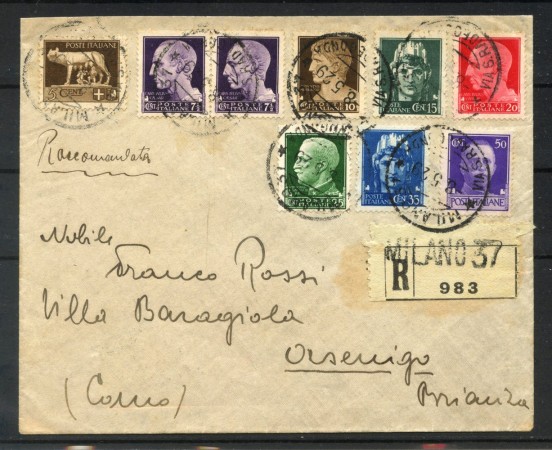 POSTE ITALIANE
5 CENT
CENT. POSTE ITALIANE 7½
CENT. POSTE ITALIANE 7½
POSTE ITALIANE 10
CEN. 15
POSTE ITALIANE 20
POSTE ITALIANE 25
CEN. 35
50
POSTE ITALIANE
Raccomandata
MILANO 37
R
983
Nobile
Franco Rossi
Villa Baragiola
Orsenigo
(Como) Brianza